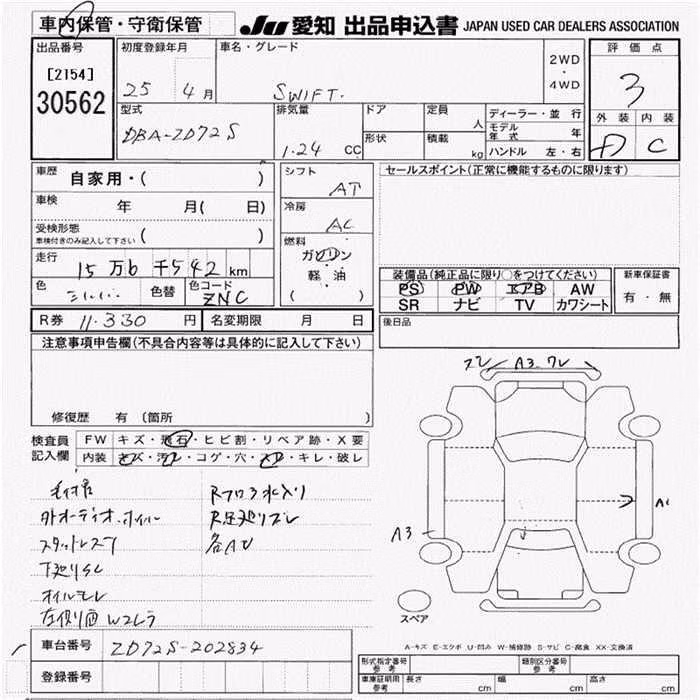 車内保管・守衛保管
JU 愛知 出品申込書 JAPAN USED CAR DEALERS ASSOCIATION
出品番号
[2154]
30562
初度登録年月
25 4 月
車名・グレード
SWIFT.
2WD
・
4WD
評価点
3
型式
DBA-ZD72S
排気量
1.24 CC
ドア
形状
定員
人
積載
kg
ディーラー・並行
モデル年式 年
ハンドル 左・右
外装 内装
D C
車歴 自家用・( )
車検 年 月( 日)
受検形態
車検付きのみ記入して下さい ( )
走行 15万6千542 km
色
色替
色コード
ZNC
シフト
AT
冷房
AC
燃料
ガソリン
軽油
( )
セールスポイント(正常に機能するものに限ります)
装備品(純正品に限り○をつけてください)
PS PW エアB AW
SR ナビ TV カワシート
新車保証書
有・無
後日品
R券 11.330 円
名変期限 月 日
注意事項申告欄(不具合内容等は具体的に記入して下さい)
修復歴 有 (箇所 )
検査員
記入欄
FW キズ・飛石・ヒビ割・リペア跡・X要
内装 キズ・汚レ・コゲ・穴・スレ・キレ・破レ
外オーディオ.ホイル
各AU
下廻りSC
オイルモレ
A3
A3
スペア
A-キズ E-エクボ U-凹み W-補修跡 S-サビ C-腐食 XX-交換済
車台番号 ZD72S-202834
登録番号
形式指定番号
参考
類別区分番号
参考
車庫証明用
参考
長さ cm 幅 cm 高さ cm